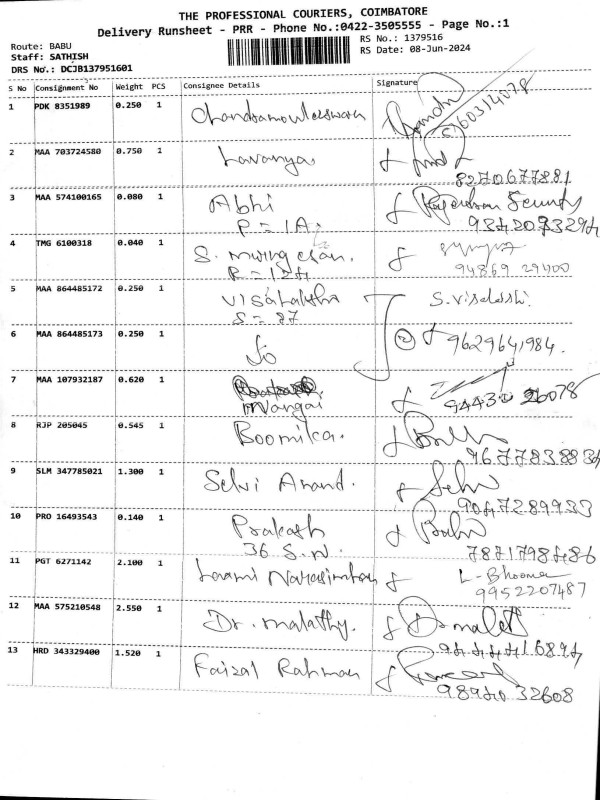 THE PROFESSIONAL COURIERS, COIMBATORE
Delivery Runsheet - PRR - Phone No.:0422-3505555 - Page No.:1
Route: BABU
RS No.: 1379516
Staff: SATHISH
RS Date: 08-Jun-2024
DRS No.: DCJB137951601
S No Consignment No Weight PCS Consignee Details Signature
1 PDK 8351989 0.250 1 Chandramouleeswaran
2 MAA 703724580 0.750 1 Lavanya
8270677881
3 MAA 574100165 0.080 1 Abhi
P = 1A
4 TMG 6100318 0.040 1 S. murugesan.
94869 29400
5 MAA 864485172 0.250 1 Visalakshi S. Visalakshi
S = 87
6 MAA 864485173 0.250 1 9629641984.
7 MAA 107932187 0.620 1
Mangai
8 RJP 205045 0.545 1 Boomika.
9677838836
9 SLM 347785021 1.300 1 Selvi Anand. Selvi
9047289933
10 PRO 16493543 0.140 1 Prakash
36 S.N. 7871798486
11 PGT 6271142 2.100 1 Laxmi Narasimhan L- Bhooma
9952207487
12 MAA 575210548 2.550 1 Dr. malathy.
9444416894
13 HRD 343329400 1.520 1 Faizal Rahman
9894032608